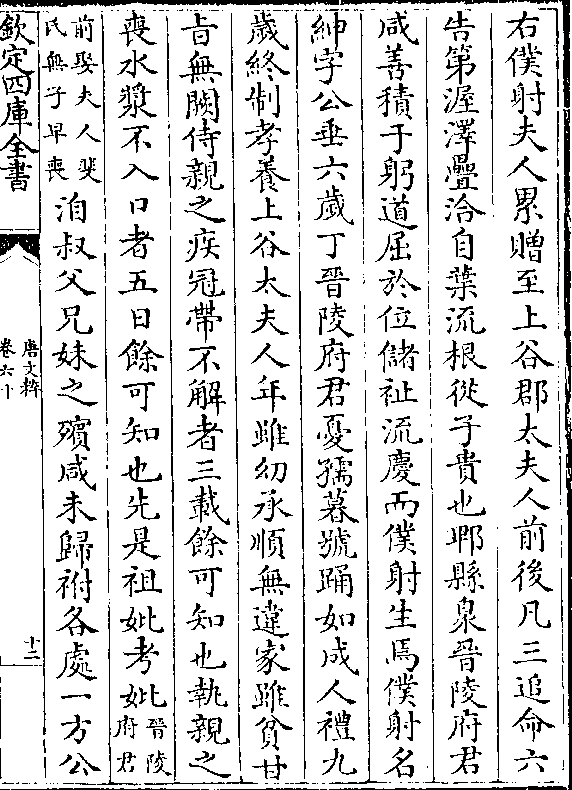 右僕射夫人累贈至上谷郡太夫人前後凡三追命六
告第渥澤疊洽自葉流根從子貴也郫縣泉晉陵府君
咸善積于躬道屈於位儲祉流慶而僕射生焉僕射名
紳字公垂六歲丁晉陵府君憂孺慕號踊如成人禮九
歲終制孝養上谷太夫人年雖幼承順無違家雖貧甘
旨無闕侍親之疾冠帶不解者三載餘可知也執親之
喪水漿不入口者五日餘可知也先是祖妣考妣晉陵府君
前娶夫人裴氏無子早喪洎叔父兄妹之殯咸未歸祔各處一方公
欽定四庫全書
唐文粹
卷六十
十二